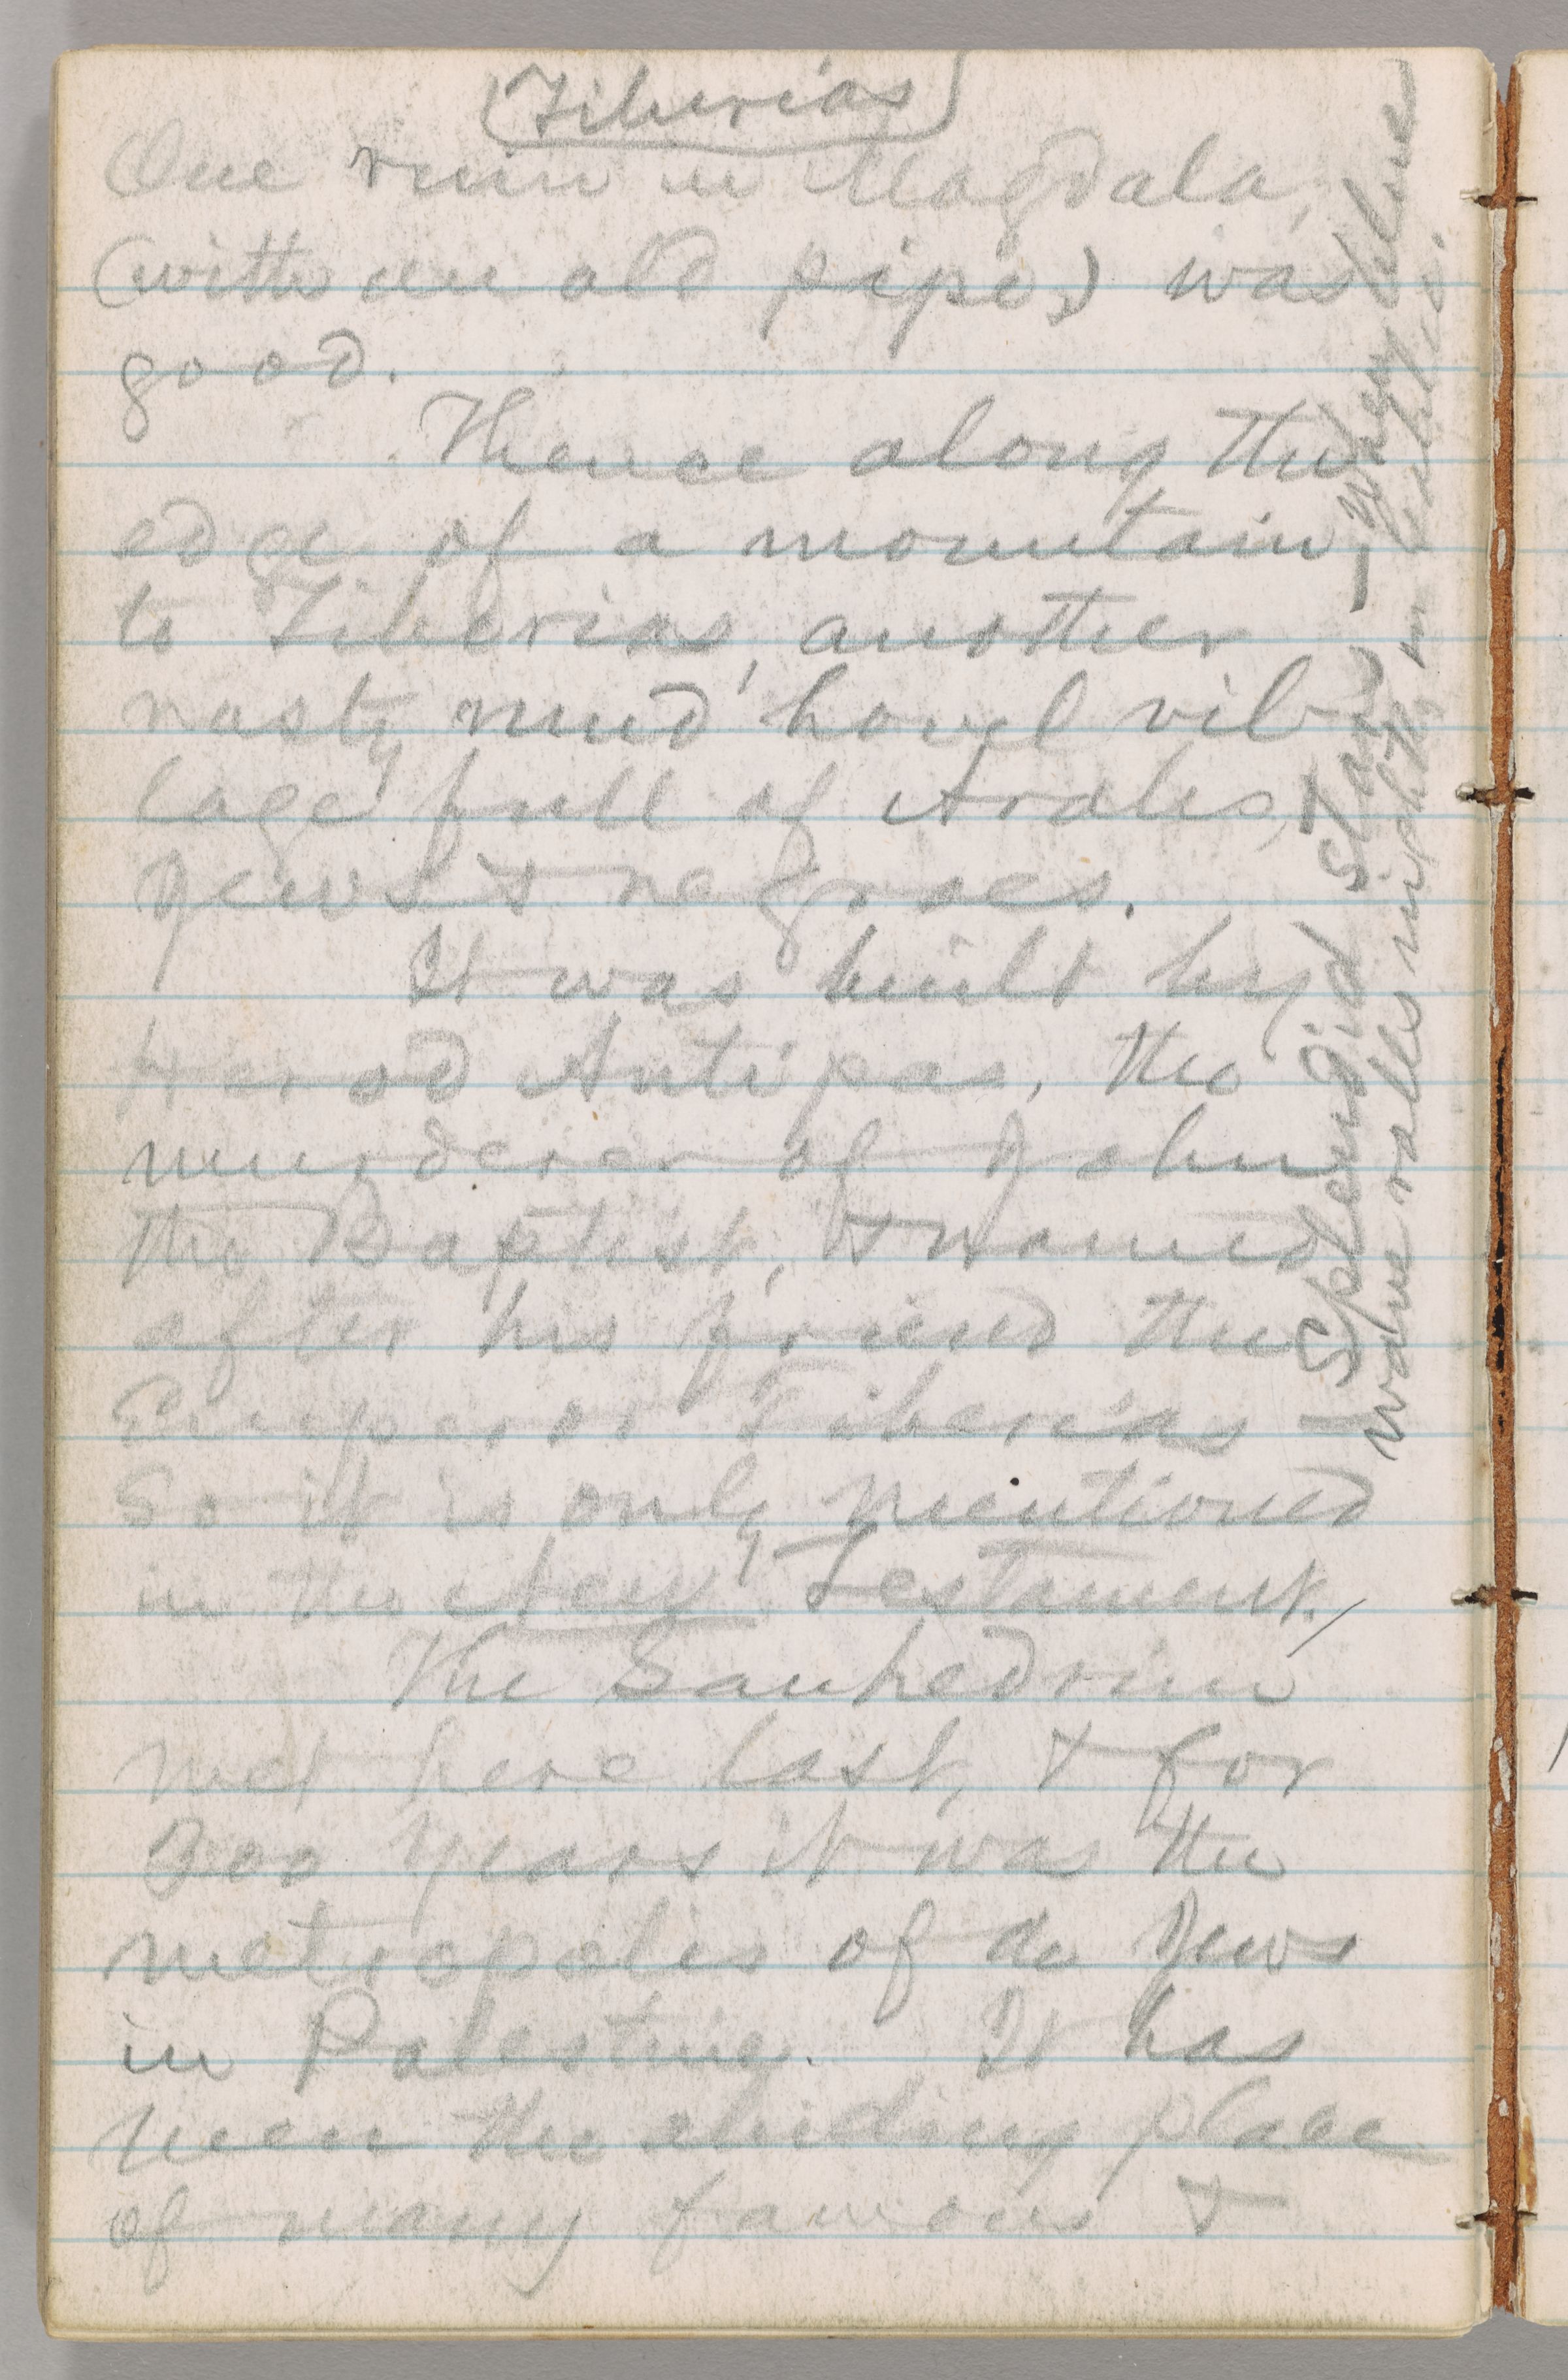 (Tiberias)
One ruin in Magdala,
(with an old pipe,) was
good.
Thence along the
edge of a mountain,
to Tiberias, another
nasty mud hovel vil-
lage full of Arabs,
Jews & negroes.
It was built by
Herod Antipas, the
murderer of John
the Baptist, & named
after his friend the
Emperor Tiberias —
So it is only mentioned
in the New Testament.
The Sanhedrim
met here last, & for
300 years it was the
metropolis of the Jews
in Palestine. It has
been the abiding place
of many famous &
Splendid stars, blue
water walls nights, in